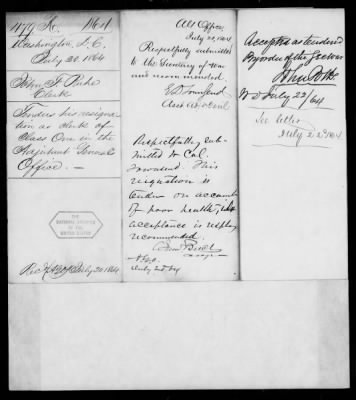 1864
Washington, D.C.
July 20. 1864
John F.
Clerk
Tenders his resigna
tion as clerk of
Class One in the
Adjutant General
Office.
THE
NATIONAL ARCHIVES
OF THE
UNITED STATES
July 20 1864
AG Office,
July 22, 1864
Respectfully submitted
to the Secretary of War
and recommended.
E D Townsend
Asst Adjt Genl
Respectfully sub-
mitted to Col.
Townsend. This
resignation is
tender on account
of poor health, its
acceptance is respty
recommended.
July 20 64
Accepted as tendered
By order of the Secretary
John Potts
W D July 22/64
See letter
July 22 1864